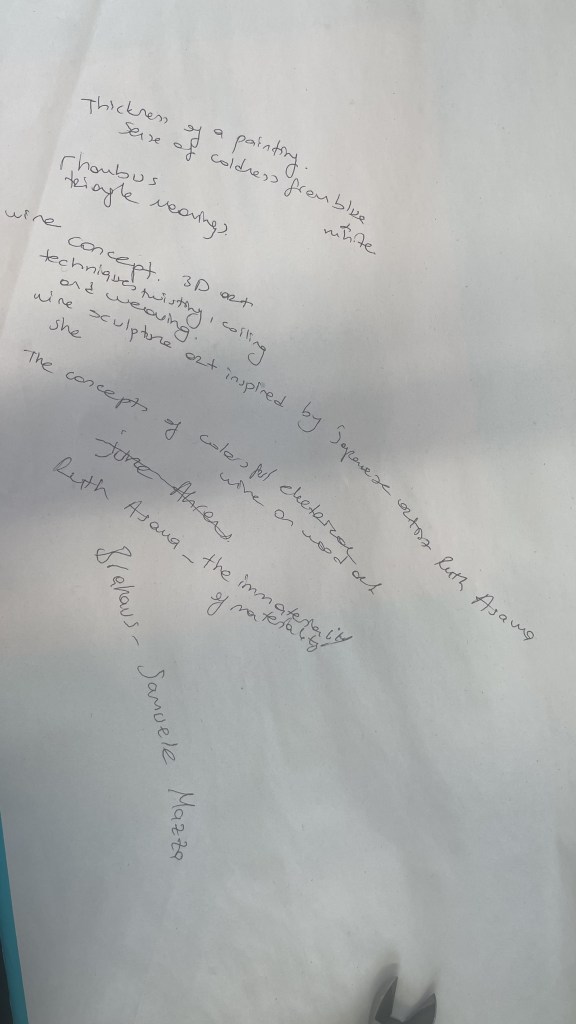 Thickness of a painting.
Sense of coldness from blue
+ white
rhombus
triangle weavings.
wire concept. 3D art
techniques twisting, coiling
and weaving.
wire sculpture art inspired by Japanese artist Ruth Asawa
she
The concepts of colorful electrical
wire on wood art
Ruth Asawa - the immateriality
of materiality
- Samuele Mazza